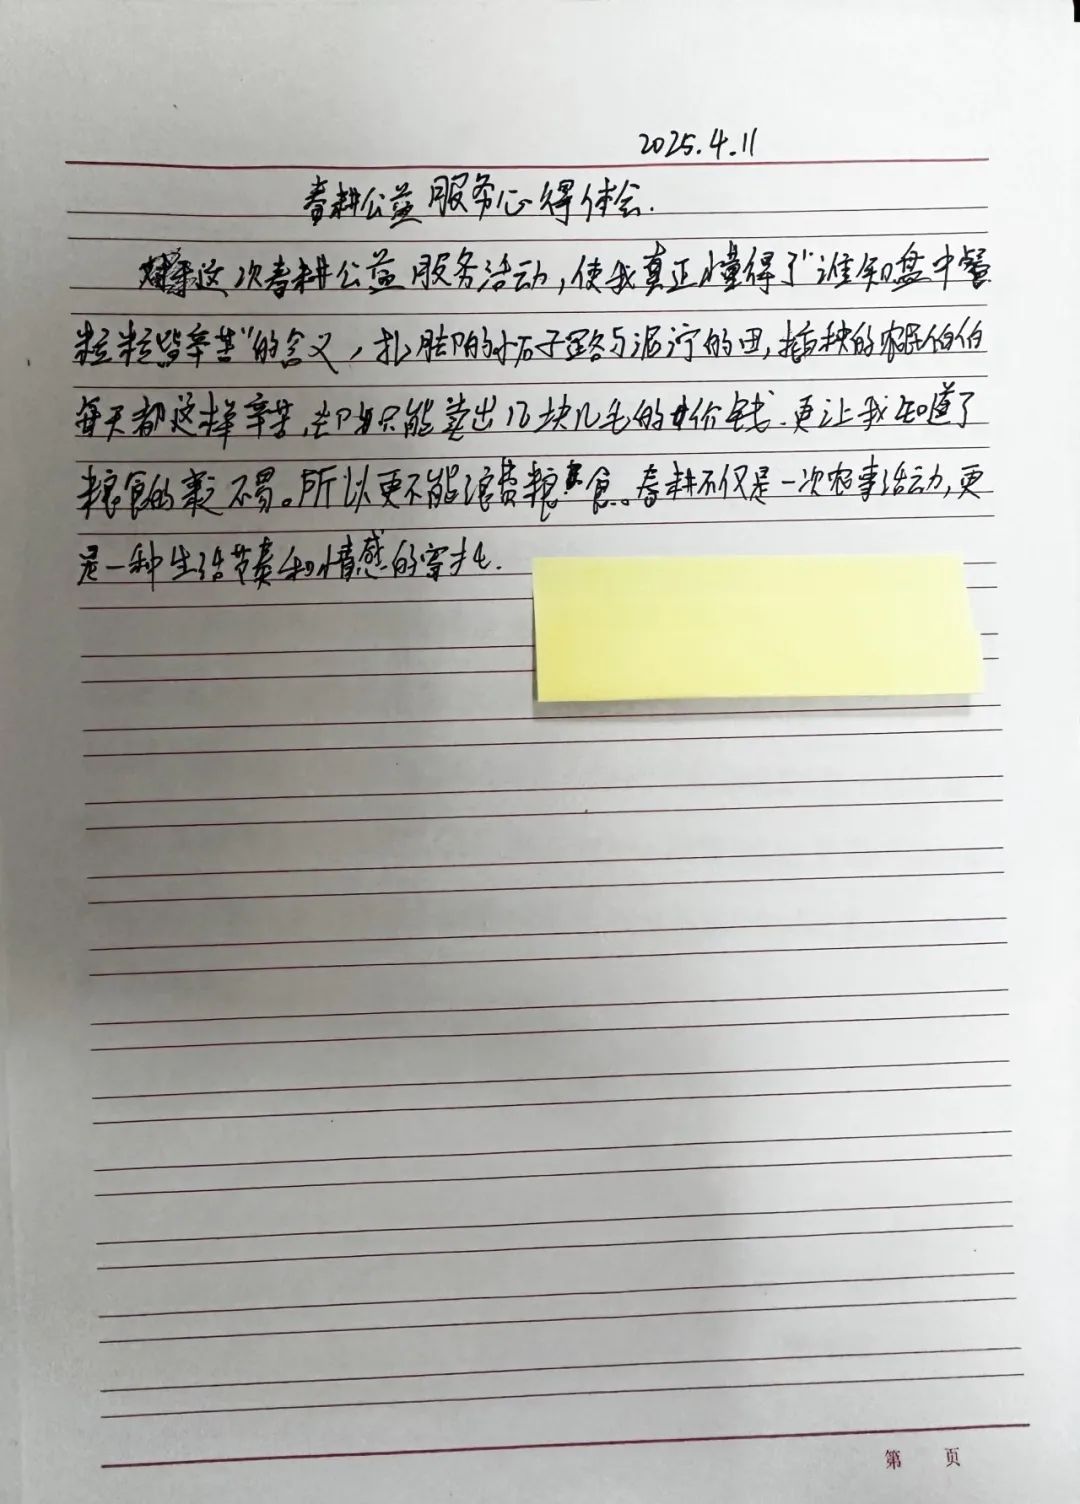 2025.4.11
春耕公益服务心得体会.
这次春耕公益服务活动，使我真正懂得了“谁知盘中餐
粒粒皆辛苦”的含义，扎脚的小石子路与泥泞的田，插秧的农民伯伯
每天都这样辛苦，却只能卖出几块几毛的价钱.更让我知道了
粮食的来之不易。所以更不能浪费粮食。春耕不仅是一次农事活动，更
是一种生活节奏和情感的寄托.
第 页